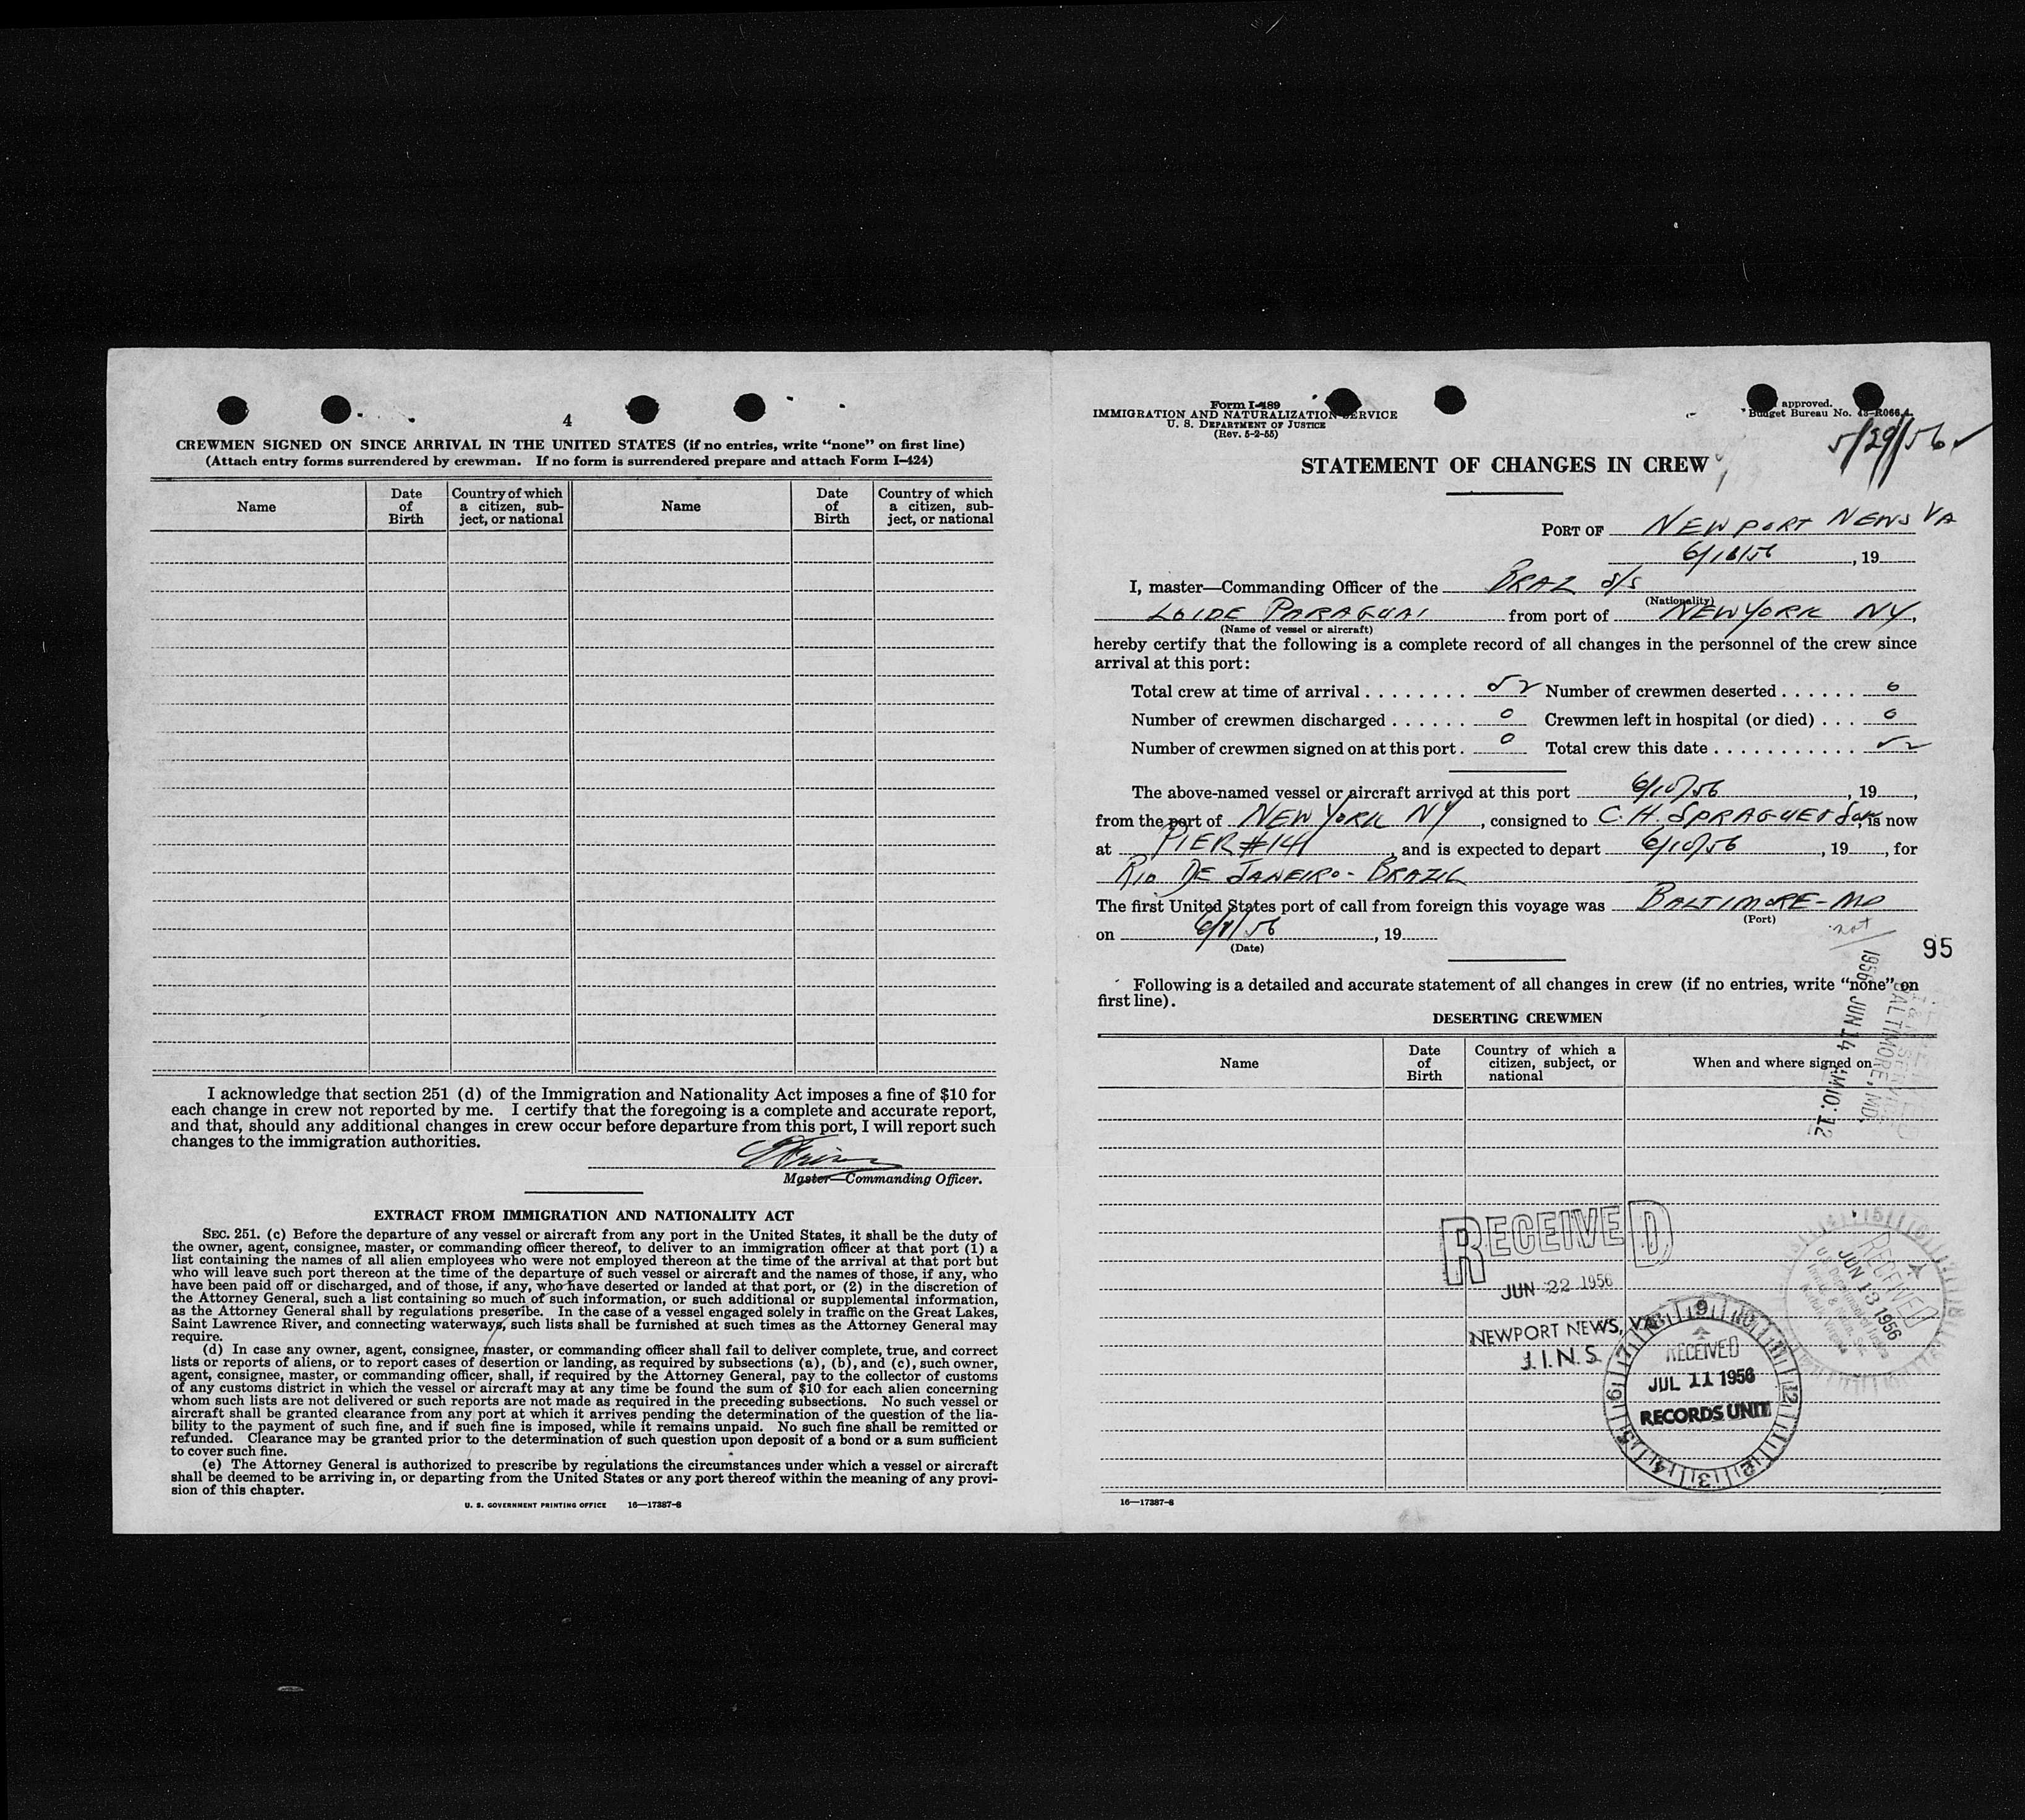 4
CREWMEN SIGNED ON SINCE ARRIVAL IN THE UNITED STATES (if no entries, write “none” on first line)
(Attach entry forms surrendered by crewman. If no form is surrendered prepare and attach Form I-424)
Name Date of Birth Country of which a citizen, subject, or national Name Date of Birth Country of which a citizen, subject, or national
I acknowledge that section 251 (d) of the Immigration and Nationality Act imposes a fine of $10 for
each change in crew not reported by me. I certify that the foregoing is a complete and accurate report,
and that, should any additional changes in crew occur before departure from this port, I will report such
changes to the immigration authorities.
Master—Commanding Officer.
EXTRACT FROM IMMIGRATION AND NATIONALITY ACT
SEC. 251. (c) Before the departure of any vessel or aircraft from any port in the United States, it shall be the duty of
the owner, agent, consignee, master, or commanding officer thereof, to deliver to an immigration officer at that port (1) a
list containing the names of all alien employees who were not employed thereon at the time of the arrival at that port but
who will leave such port thereon at the time of the departure of such vessel or aircraft and the names of those, if any, who
have been paid off or discharged, and of those, if any, who have deserted or landed at that port, or (2) in the discretion of
the Attorney General, such a list containing so much of such information, or such additional or supplemental information,
as the Attorney General shall by regulations prescribe. In the case of a vessel engaged solely in traffic on the Great Lakes,
Saint Lawrence River, and connecting waterways, such lists shall be furnished at such times as the Attorney General may
require.
(d) In case any owner, agent, consignee, master, or commanding officer shall fail to deliver complete, true, and correct
lists or reports of aliens, or to report cases of desertion or landing, as required by subsections (a), (b), and (c), such owner,
agent, consignee, master, or commanding officer, shall, if required by the Attorney General, pay to the collector of customs
of any customs district in which the vessel or aircraft may at any time be found the sum of $10 for each alien concerning
whom such lists are not delivered or such reports are not made as required in the preceding subsections. No such vessel or
aircraft shall be granted clearance from any port at which it arrives pending the determination of the question of the lia-
bility to the payment of such fine, and if such fine is imposed, while it remains unpaid. No such fine shall be remitted or
refunded. Clearance may be granted prior to the determination of such question upon deposit of a bond or a sum sufficient
to cover such fine.
(e) The Attorney General is authorized to prescribe by regulations the circumstances under which a vessel or aircraft
shall be deemed to be arriving in, or departing from the United States or any port thereof within the meaning of any provi-
sion of this chapter.
U. S. GOVERNMENT PRINTING OFFICE 16—17387-8
Form I-489
IMMIGRATION AND NATURALIZATION SERVICE
U. S. DEPARTMENT OF JUSTICE
(Rev. 5-2-55)
approved.
Budget Bureau No. 43-R066.4.
5/29/56 ✓
STATEMENT OF CHANGES IN CREW
PORT OF NEWPORT NEWS VA
, 19
I, master—Commanding Officer of the BRAZ S/S
(Nationality)
LOIDE PARAGUAI from port of NEW YORK NY,
(Name of vessel or aircraft)
hereby certify that the following is a complete record of all changes in the personnel of the crew since
arrival at this port:
Total crew at time of arrival 52 Number of crewmen deserted 0
Number of crewmen discharged 0 Crewmen left in hospital (or died) 0
Number of crewmen signed on at this port 0 Total crew this date 52
The above-named vessel or aircraft arrived at this port 6/10/56, 19,
from the port of NEW YORK NY, consigned to C. H. SPRAGUE & Son, is now
at PIER #14, and is expected to depart 6/10/56, 19, for
RIO DE JANEIRO - BRAZIL
The first United States port of call from foreign this voyage was BALTIMORE - MD
(Port)
on , 19
(Date)
not
95
Following is a detailed and accurate statement of all changes in crew (if no entries, write “none” on
first line).
DESERTING CREWMEN
Name Date of Birth Country of which a citizen, subject, or national When and where signed on
BALTIMORE, MD.
1956 JUN 14 AM 10: 12
RECEIVED
JUN 22 1956
NEWPORT NEWS, VA.
J.I.N.S.
RECEIVED
JUN 13 1956
U.S. Department of Justice
Immig. & Natz. Ser.
Norfolk, Virginia
RECEIVED
JUL 11 1956
RECORDS UNIT
16—17387-8